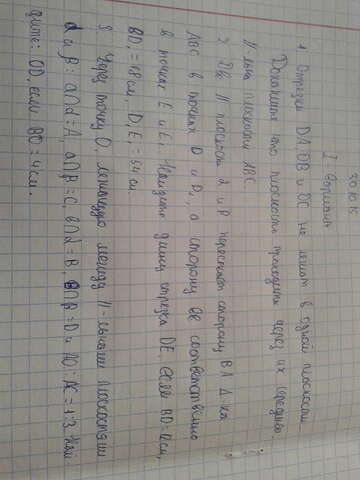 30.10.15
I Вариант
1. Отрезки DA, DB и DC не лежат в одной плоскости
Докажите что плоскость проходящая через их середины
// льна плоскости ABC
2. Две // плоскости α и β пересекают сторону BA Δ-ка
ABC в точках D и D₁, а сторону BC соответственно
в точках E и E₁. Найдите длину отрезка DE, если BD=12см,
BD₁=18см, D₁E₁=54см
3. Через точку O, лежащую между //-льными плоскостями
α и β: a∩α=A, a∩β=C, b∩α=B, b∩β=D и AO:AC=1:3. Най
дите: OD, если BO=4см.